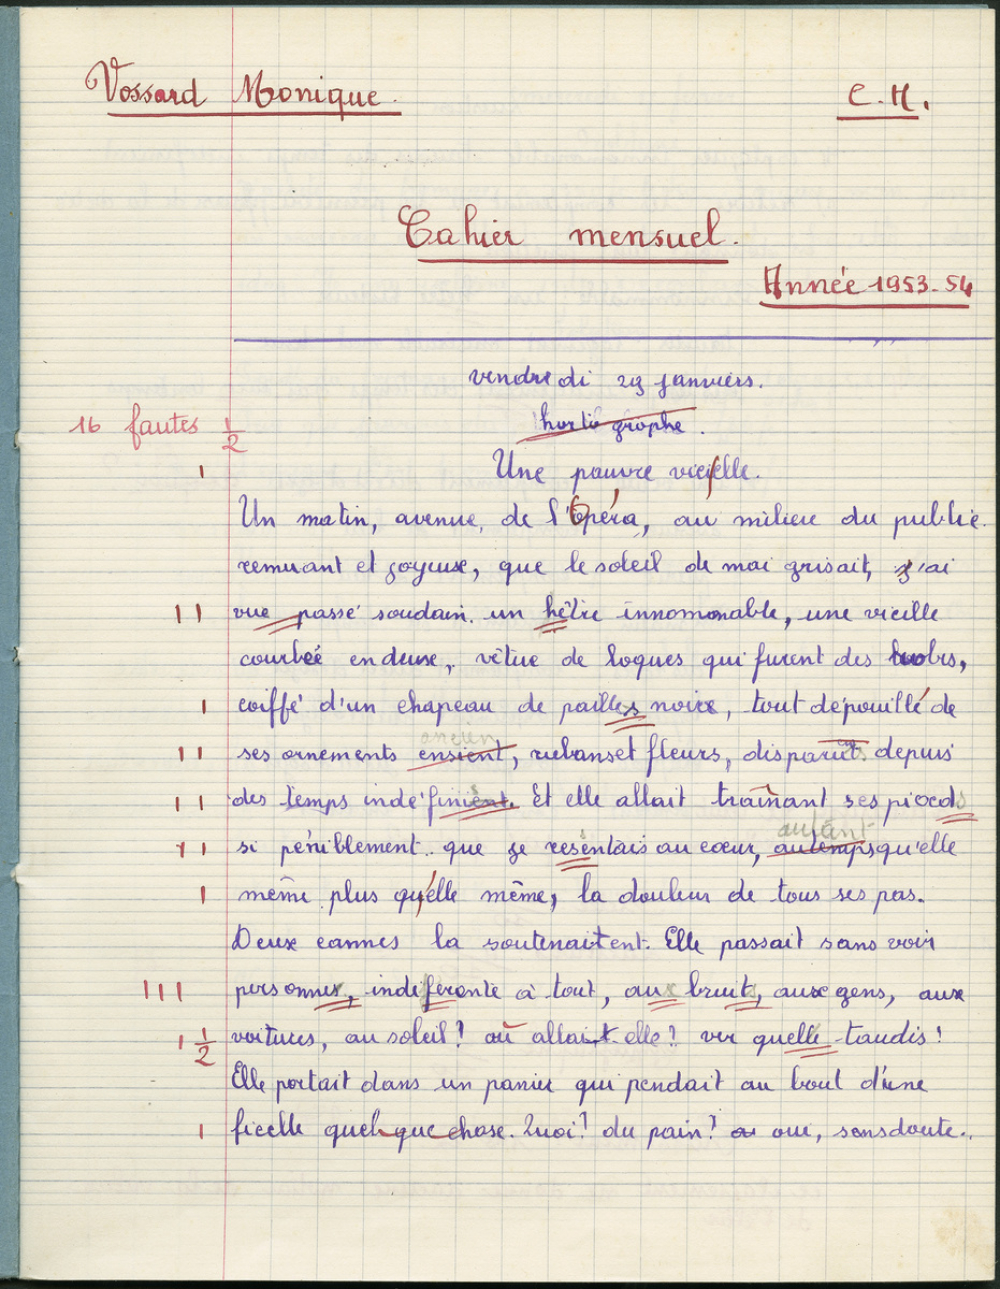 Vossard Monique.
C.M.
Cahier mensuel.
Année 1953-54
vendredi 29 janviers.
16 fautes 1/2
hortographe.
Une pauvre vieielle.
Un matin, avenue, de l'Opéra, au milieu du public
remuant et joyeuse, que le soleil de mai grisait, j'ai
vue passé soudain. un hêtre innomonable, une vieille
courbée en duxe, vêtue de loques qui furent des robes,
coiffé d'un chapeau de pailles noire, tout dépouillé de
ancien
ses ornements ensient, rubans et fleurs, disparuts depuis
des temps indéfinient. Et elle allait traînant ses pieds
autant
si péniblement.. que je resentais au cœur, autemps qu'elle
même plus qu'elle même, la douleur de tous ses pas.
Deux cannes la soutenaitent. Elle passait sans voir
personnes, indiferente à tout, aux bruits, aux gens, aux
voitures, au soleil! où allait elle? ver quelle taudis!
1/2
Elle portait dans un panier qui pendait au bout d'une
ficelle quelque chose. Quoi? du pain? oui, sans doute..